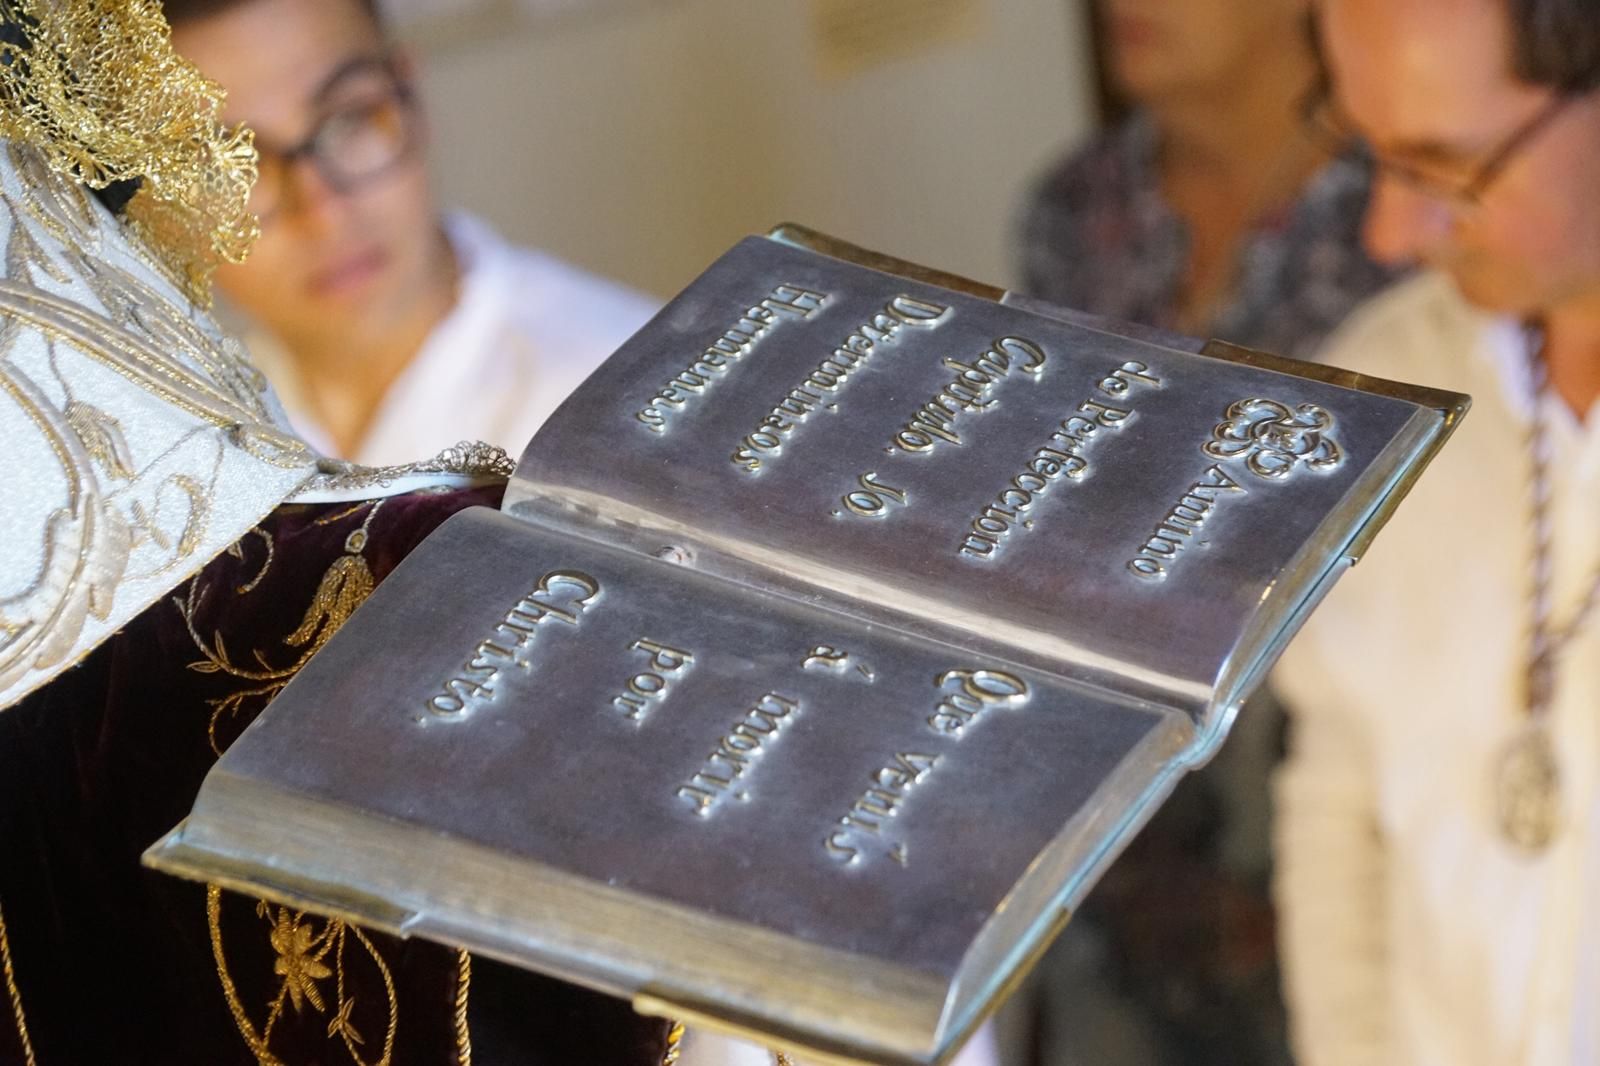 CAmino
de Perfeccion
Capitulo. Jo.
Determinaos
Hermanas
Que venís
á morir
por
Christo.